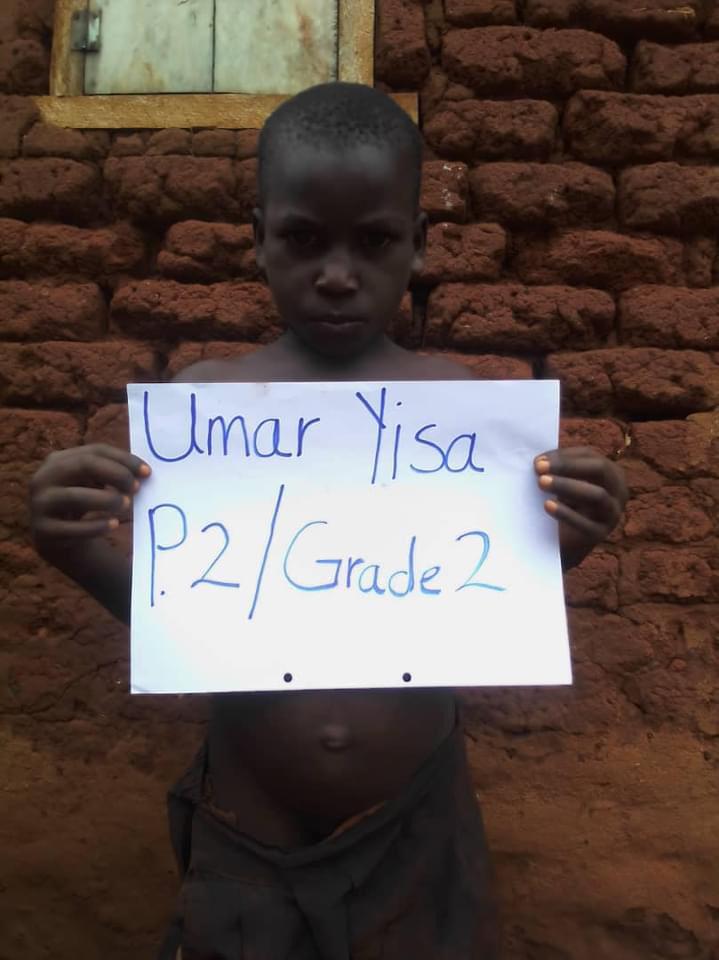 Umar Yisa
P.2/Grade 2